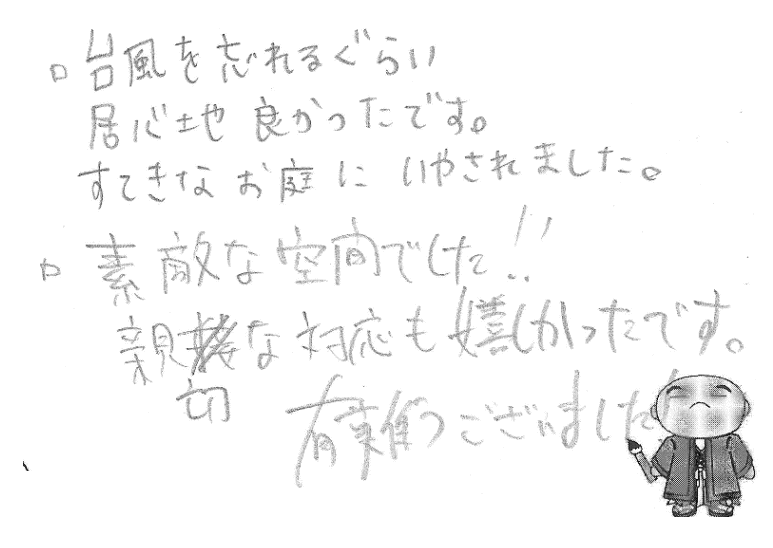 □ 台風を忘れるぐらい
居心地良かったです。
すてきなお庭にいやされました。
□ 素敵な空間でした!!
親切な対応も嬉しかったです。
有難うございました!